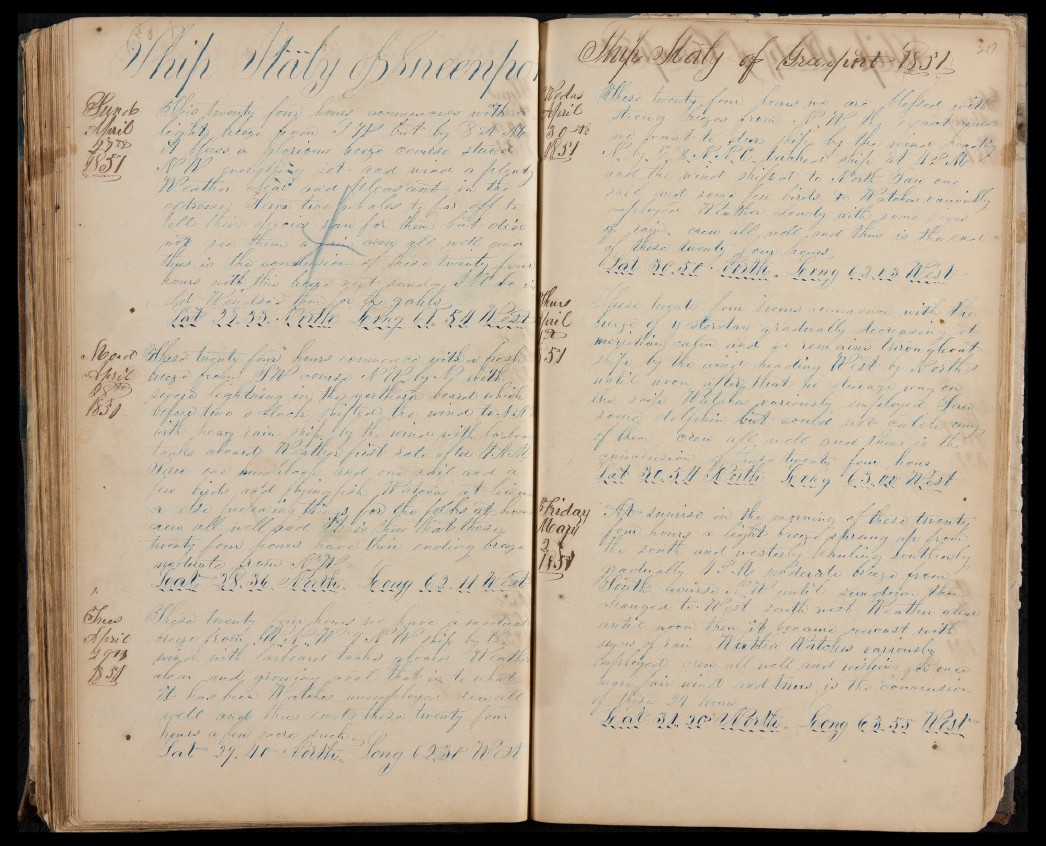 Ship Italy of Greenpor
Sund
April
27th
1851
This twenty four hours commences with a
light breeze from S W but by 8 A M
it was a glorious breeze course steered
N W everything set and wind a plenty
Weather clear and pleasant in the
two whales to far off to
tell their species ran for them but did
not see them again crew all well and
thus is the conclusion of these twenty four
hours with this breeze
for the gales
Lat 28.33 North Long 61.54 West
Mond
April
28th
1851
These twenty four hours commenced with a fresh
breeze from S W course N W by N with
severe lightning in the northern board which
before two o clock shifted the wind to N N
with heavy rain ship by the wind with larboard
tacks aboard Weather first rate after A M
Saw one and one sail and a
few birds and flying fish Watches at
for the folks at home
crew all well and it is thus that these
twenty four hours have their ending breeze
moderate from N W
Lat 28.36 North Long 62.11 West
Tues
April
29th
1851
These twenty four hours we have a moderate
breeze from N W ship by the
wind with larboard tacks aboard Weather
clear and growing cool that is to what
it has been Watches unemployed crew all
well and thus ends these twenty four
hours a few more such
Lat 29.40 North Long 62.30 West
Ship Italy of Greenport 1851
Wedns
April
30th
1851
These twenty four hours we are blessed with
strong breezes from N W by
we want to steer ship by the wind heading
N by E & N N E tacked ship at 4 P M
and the wind shifted to North Saw one
sail and some few birds Watches variously
employed Weather cloudy with some signs
of rain crew all well and thus is the end
of these twenty four hours
Lat 30.50 North Long 62.13 West
Thurs
51
These twenty four hours commence with the
breeze of yesterday gradually decreasing at
meridian calm and so remains throughout
ship by the wind heading West by North
until noon after that no steerage way on
the ship Watches variously employed Saw
some dolphin but could not catch any
of them crew all well and thus is the
conclusion of these twenty four hours
Lat 30.54 North Long 63.00 West
Friday
May
2
1851
At sunrise in the morning of these twenty
four hours a light breeze sprung up from
the south and westerly hauling southerly
gradually 4 P M moderate breeze from
South course N W until sun down then
changed to West south west Weather clear
until noon then it became overcast with
signs of rain Watches variously
employed crew all well and wishing for once
more fair wind and thus is the conclusion
of these 24 hours
Lat 31.20 North Long 63.55 West